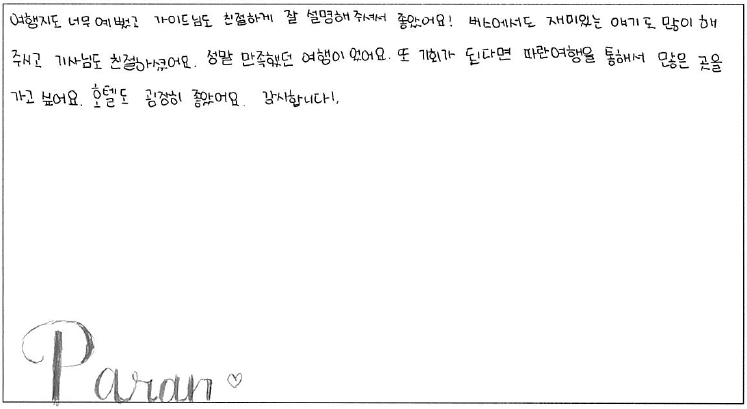 여행지도 너무 예뻤고 가이드님도 친절하게 잘 설명해주셔서 좋았어요! 버스에서도 재미있는 얘기도 많이 해
주시고 기사님도 친절하셨어요. 정말 만족했던 여행이었어요. 또 기회가 된다면 파란여행을 통해서 많은 곳을
가고 싶어요. 호텔도 굉장히 좋았어요. 감사합니다!.
Paran ♡